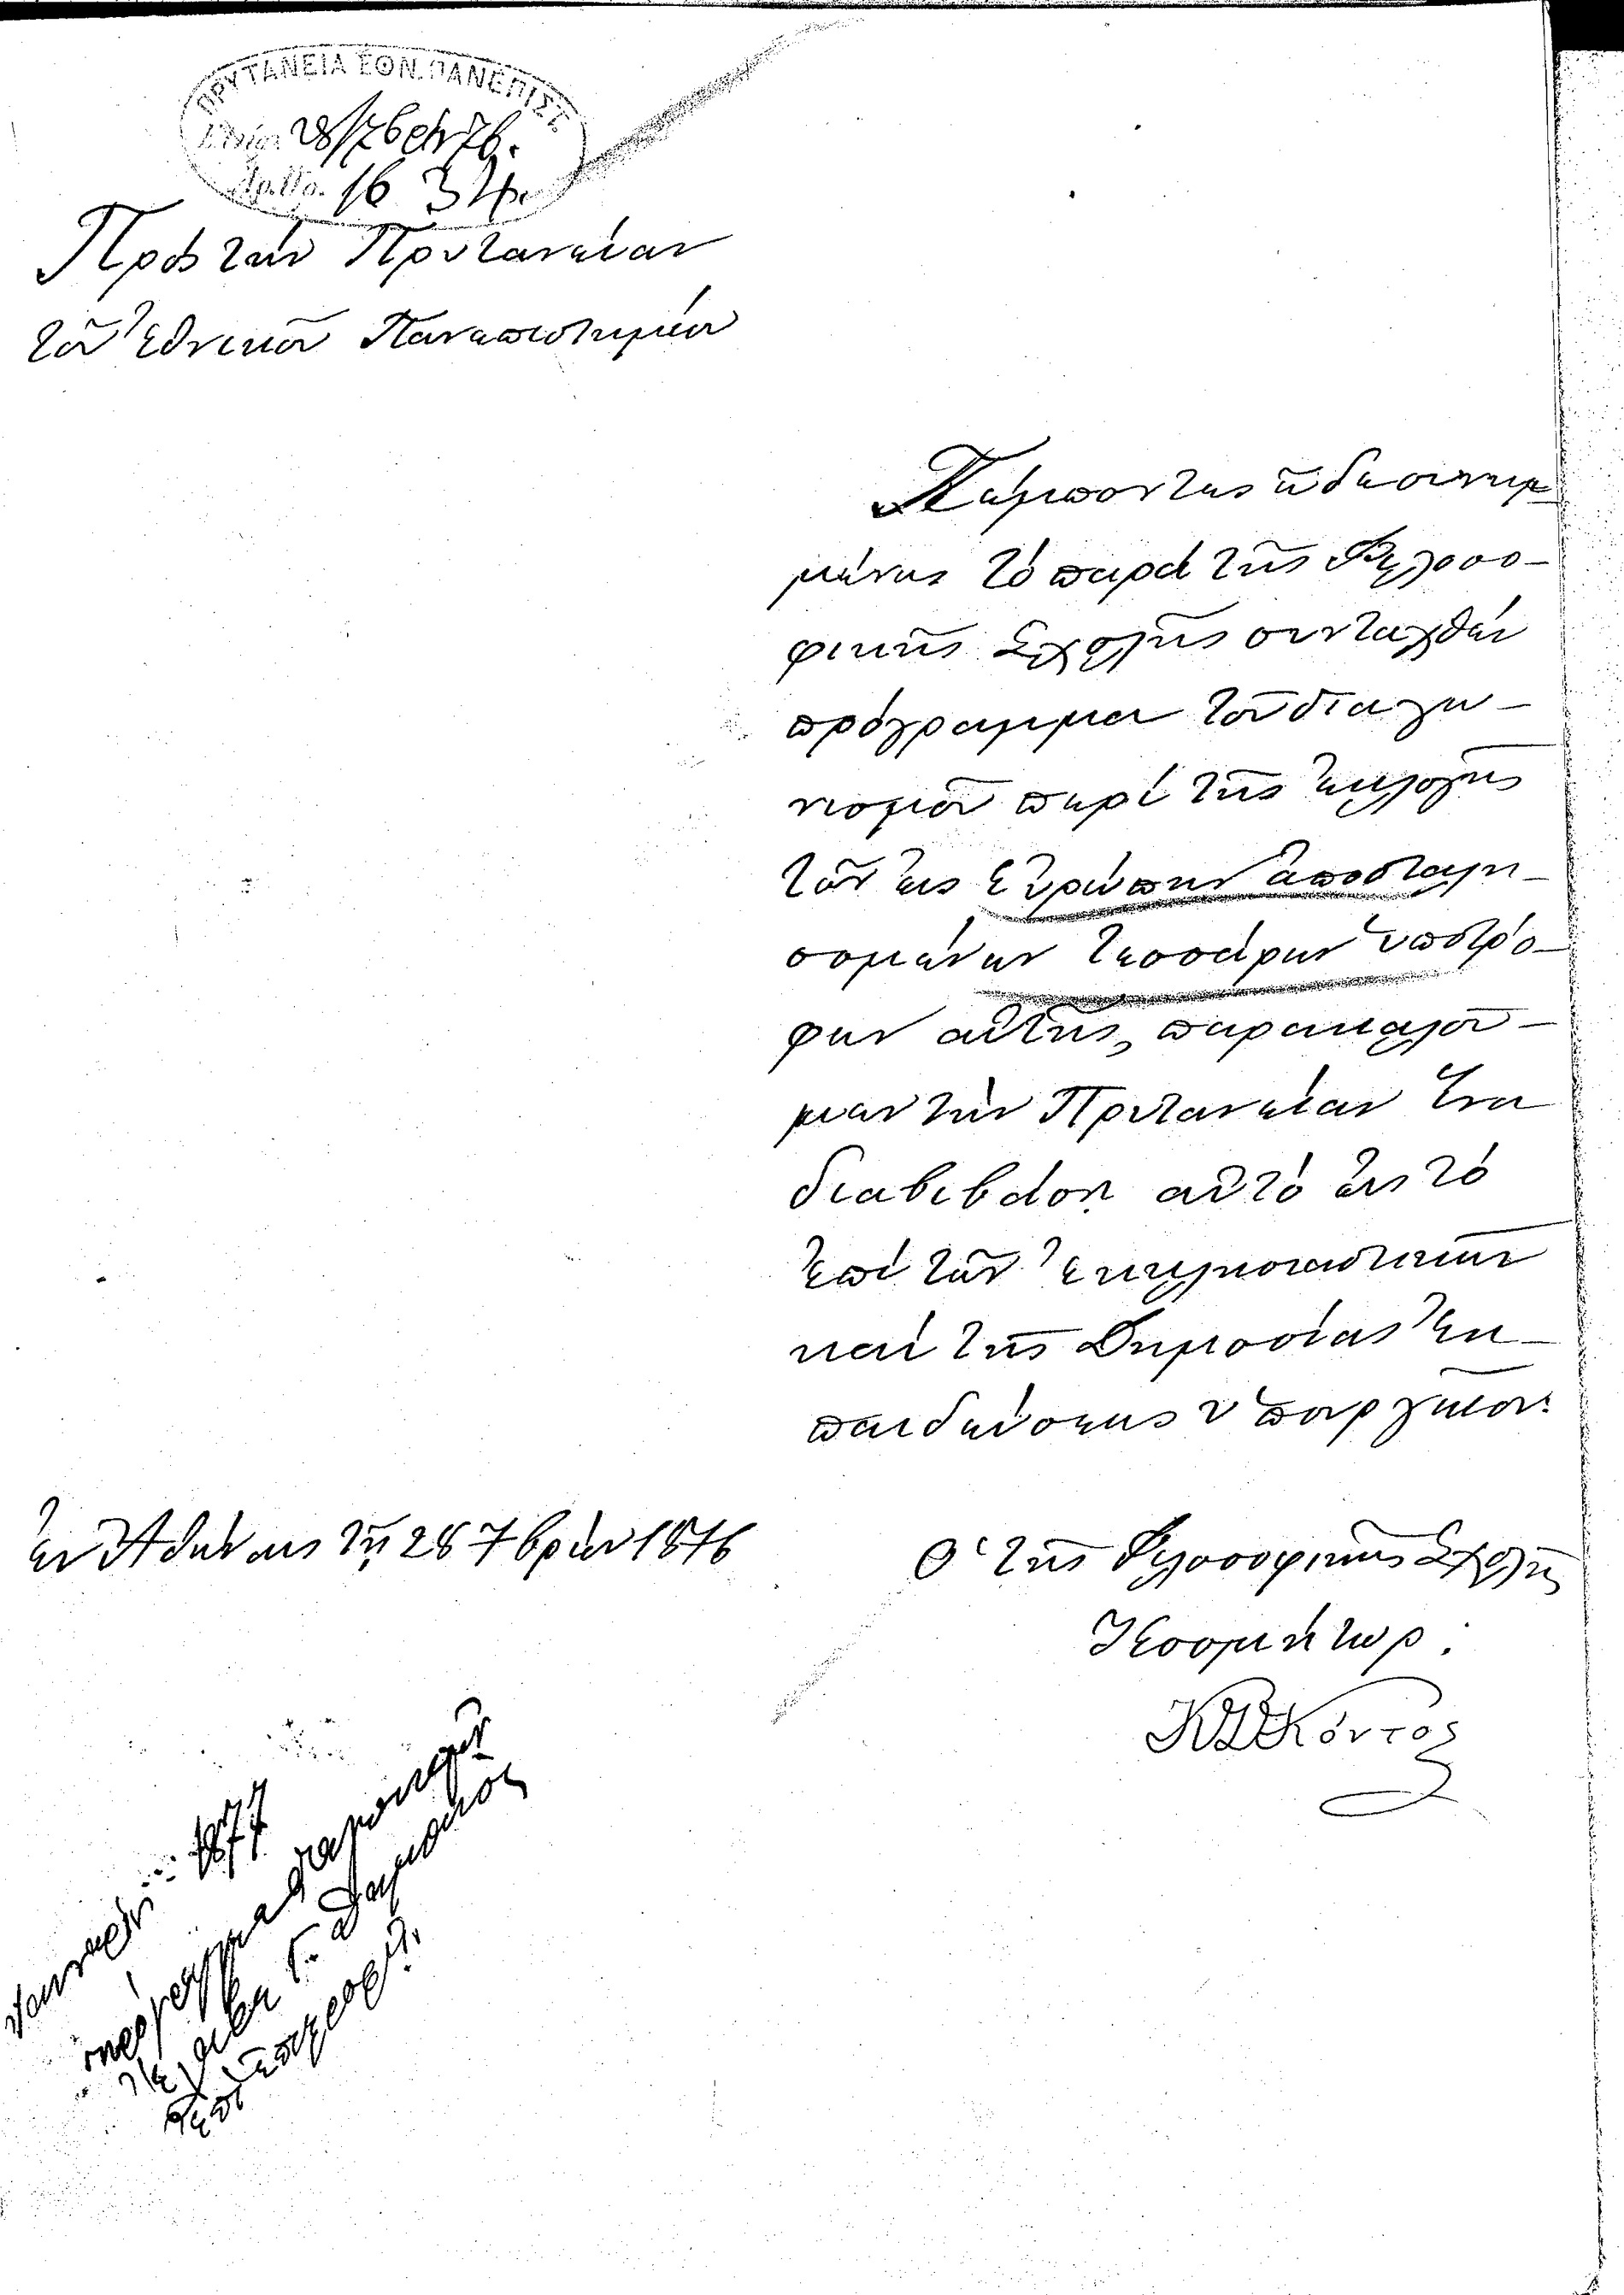 ΠΡΥΤΑΝΕΙΑ ΕΘΝ. ΠΑΝΕΠΙΣΤ.
28/7βρ 76.
Ἀρ. Πρ. 1634.
Πρὸς τὴν Πρυτανείαν
τοῦ Ἐθνικοῦ Πανεπιστημίου
Πέμποντες ὧδε συνημ
μένως τὸ παρὰ τῆς Φιλοσο-
φικῆς Σχολῆς συνταχθὲν
πρόγραμμα τοῦ διαγω-
νισμοῦ περὶ τῆς ἐκλογῆς
τῶν εἰς Εὐρώπην ἀποσταλη-
σομένων τεσσάρων ὑποτρό-
φων αὐτῆς, παρακαλοῦ-
μεν τὴν Πρυτανείαν ἵνα
διαβιβάσῃ αὐτὸ εἰς τὸ
ἐπὶ τῶν Ἐκκλησιαστικῶν
καὶ τῆς Δημοσίας Ἐκ-
παιδεύσεως ὑπουργεῖον.
ἐν Ἀθήναις τῇ 28 7βρίου 1876
Ὁ τῆς Φιλοσοφικῆς Σχολῆς
Κοσμήτωρ.
ΚΣΚόντος
1877